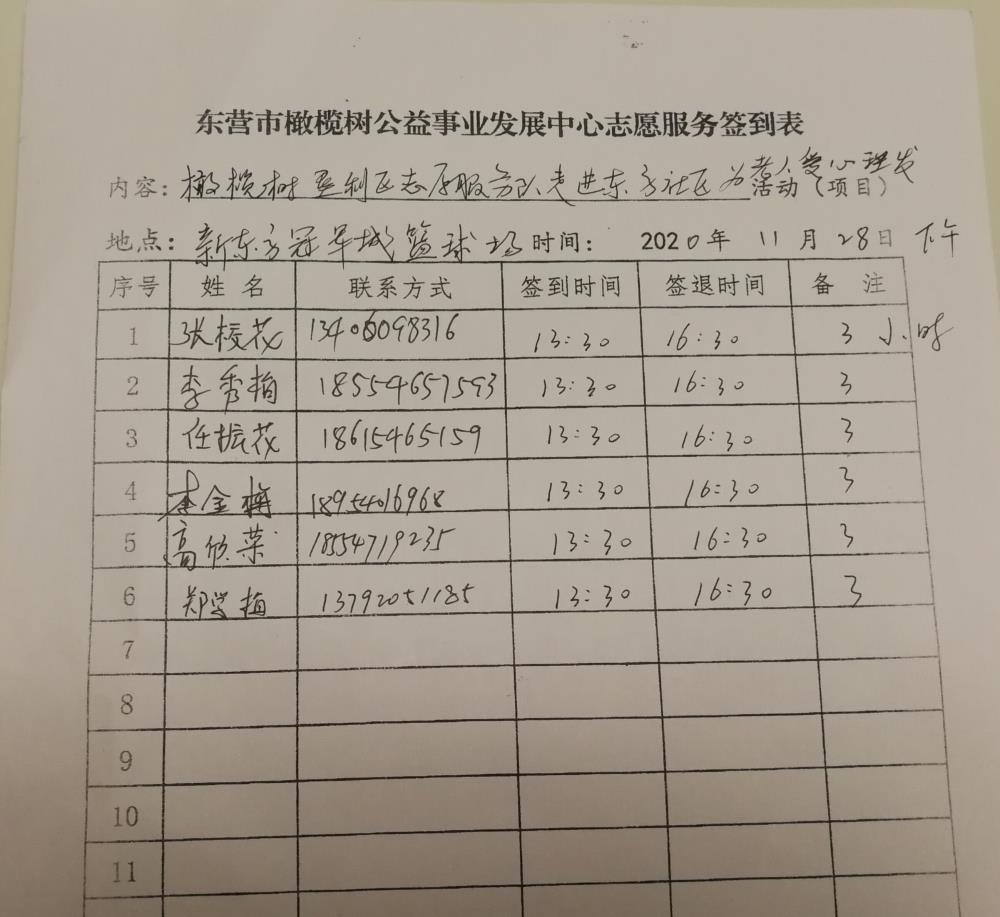 东营市橄榄树公益事业发展中心志愿服务签到表
内容：橄榄树垦利区志愿服务队走进东方社区为老人爱心理发活动（项目）
地点：新东方冠军城篮球场 时间： 2020年 11月28日 下午
序号 姓名 联系方式 签到时间 签退时间 备注
1 张校花 13406098316 13:30 16:30 3小时
2 李秀梅 18554657593 13:30 16:30 3
3 任振花 18615465159 13:30 16:30 3
4 李金梅 18954016968 13:30 16:30 3
5 高欣荣 18554719235 13:30 16:30 3
6 郑学梅 13792051185 13:30 16:30 3
7
8
9
10
11